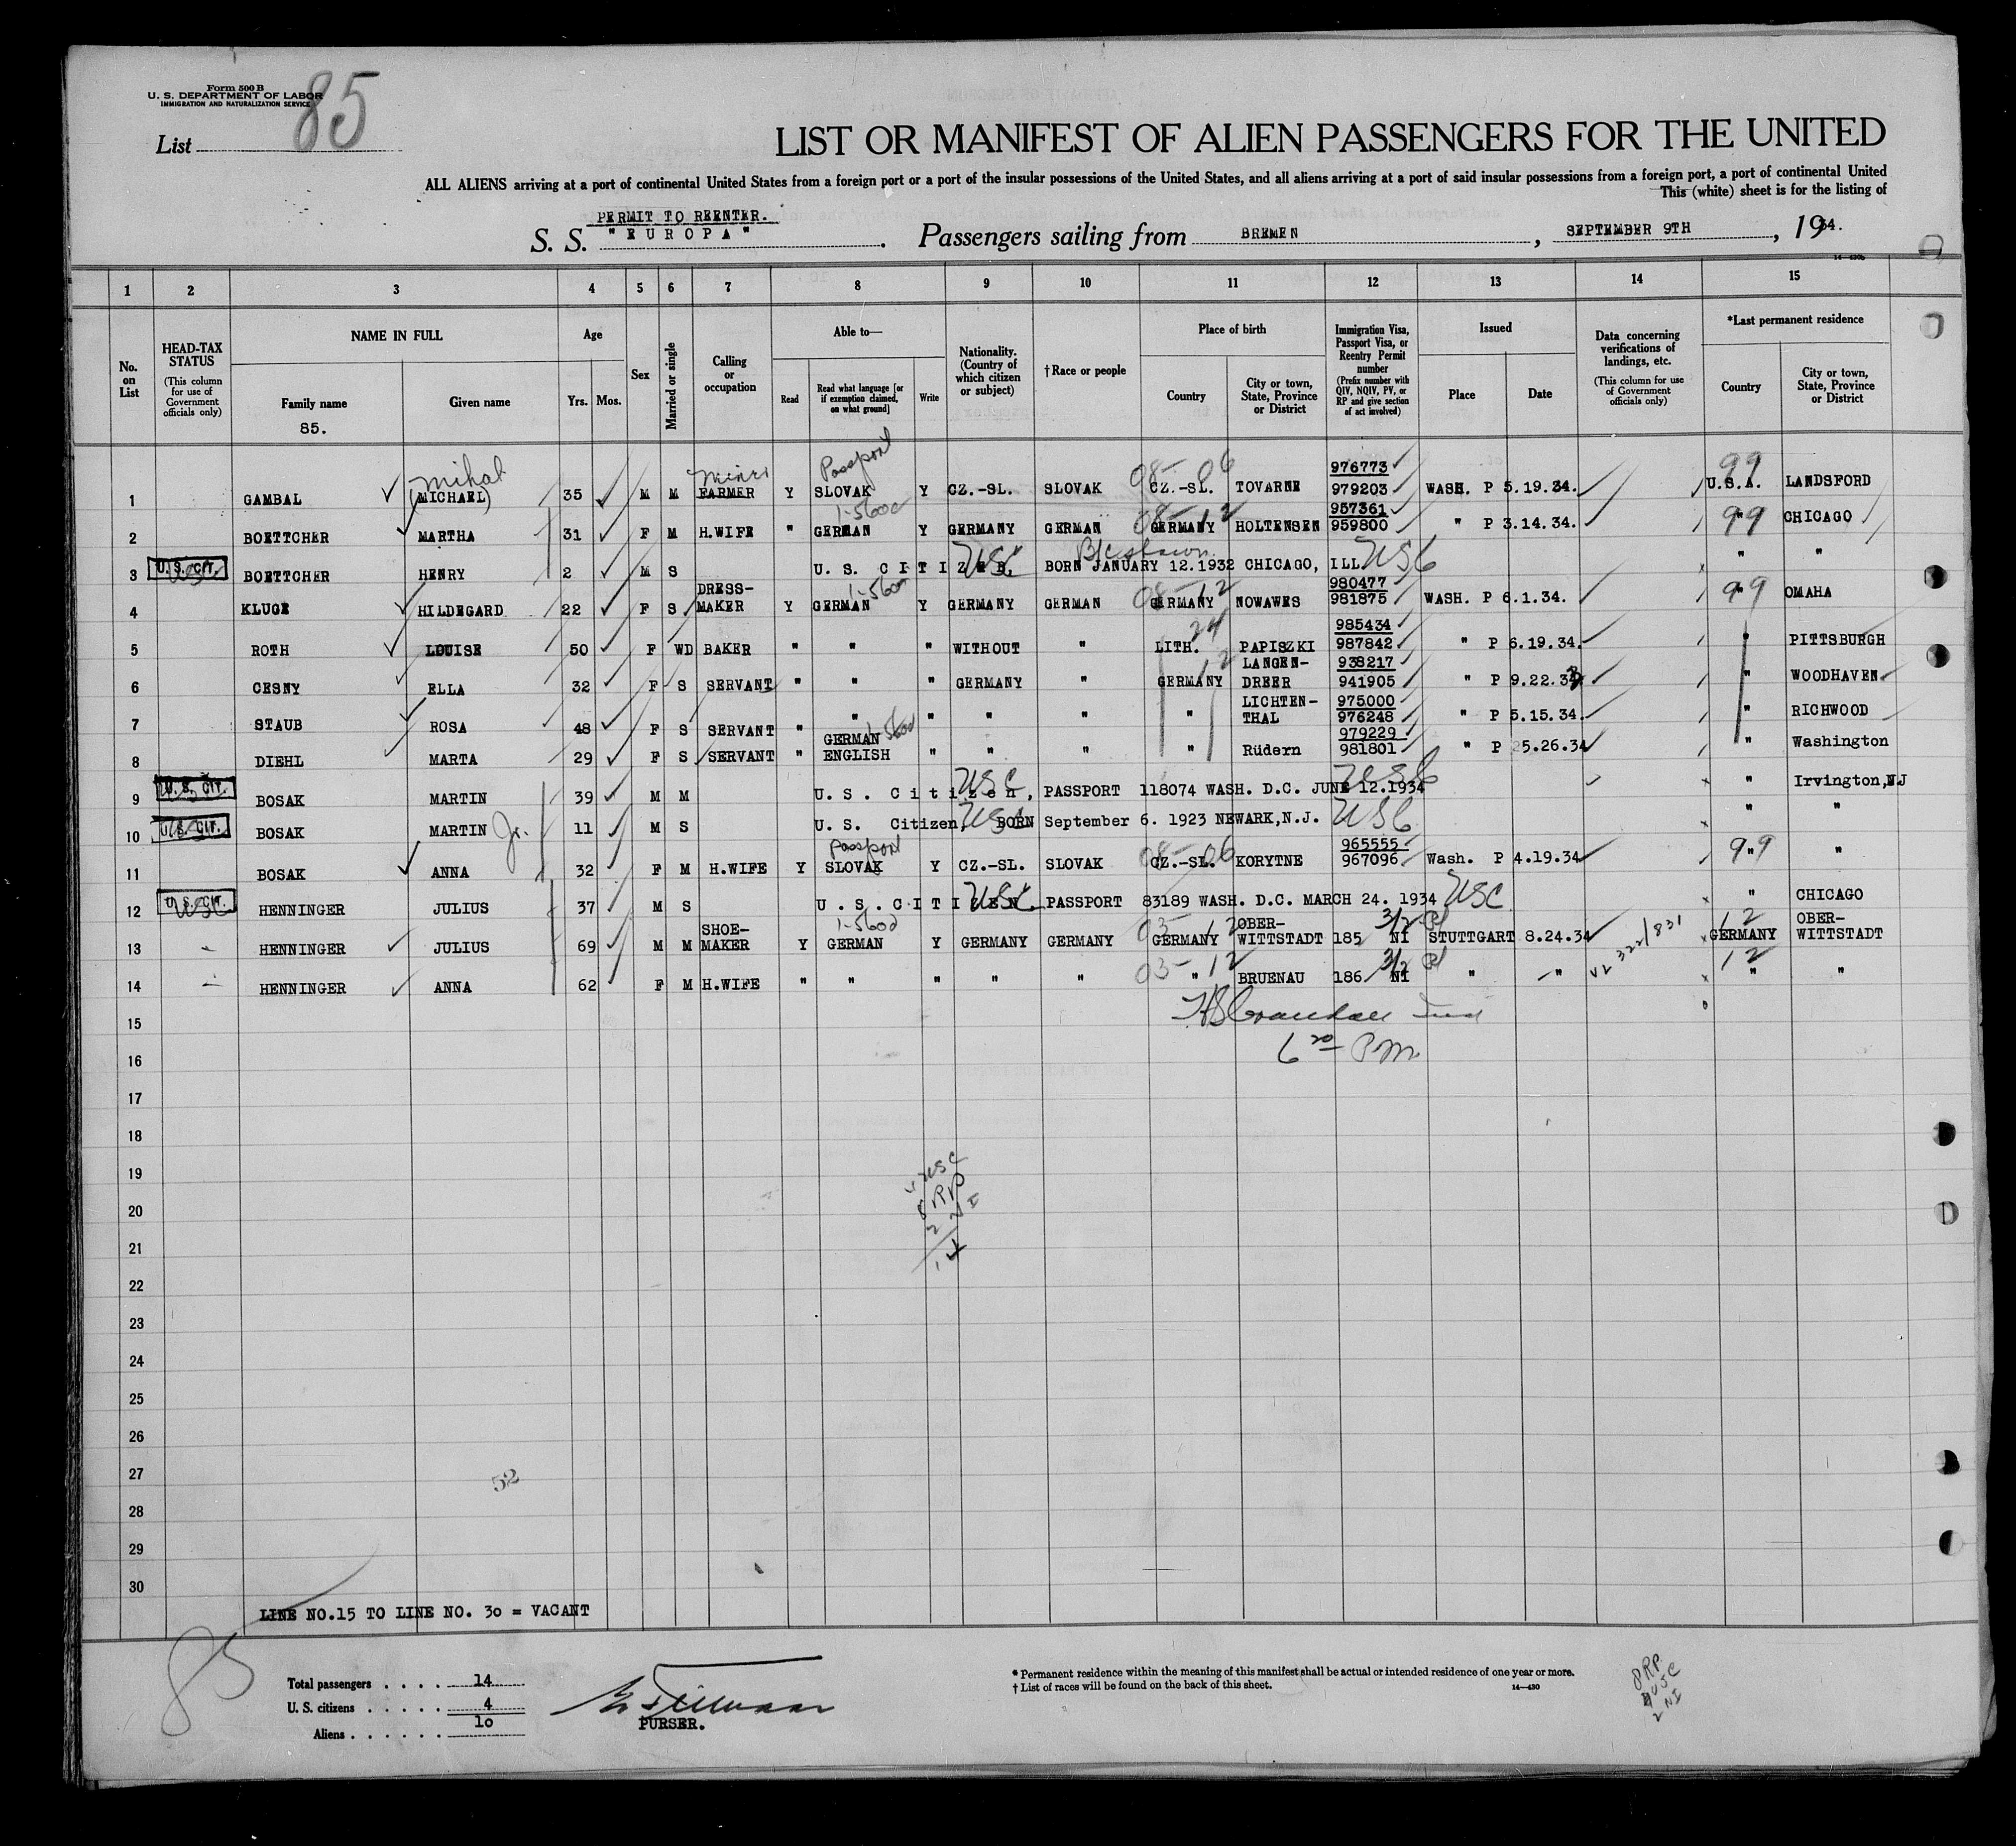 Form 500 B
U. S. DEPARTMENT OF LABOR
IMMIGRATION AND NATURALIZATION SERVICE
List 85
LIST OR MANIFEST OF ALIEN PASSENGERS FOR THE UNITED
ALL ALIENS arriving at a port of continental United States from a foreign port or a port of the insular possessions of the United States, and all aliens arriving at a port of said insular possessions from a foreign port, a port of continental United
This (white) sheet is for the listing of
PERMIT TO REENTER.
S. S. "EUROPA". Passengers sailing from BREMEN, SEPTEMBER 9TH, 1934.
14—430b
1 2 3 4 5 6 7 8 9 10 11 12 13 14 15
No. on List
HEAD-TAX STATUS (This column for use of Government officials only)
NAME IN FULL
Family name
85.
Given name
Age
Yrs. Mos.
Sex
Married or single
Calling or occupation
Able to—
Read
Read what language [or if exemption claimed, on what ground]
Write
Nationality. (Country of which citizen or subject)
† Race or people
Place of birth
Country
City or town, State, Province or District
Immigration Visa, Passport Visa, or Reentry Permit number (Prefix number with QIV, NQIV, PV, or RP and give section of act involved)
Issued
Place
Date
Data concerning verifications of landings, etc. (This column for use of Government officials only)
*Last permanent residence
Country
City or town, State, Province or District
Mihal miner Passport 08-06 976773 99
1 GAMBAL (MICHAEL) 35 M M FARMER Y SLOVAK Y CZ.-SL. SLOVAK CZ.-SL. TOVARNE 979203 WASH. P 5.19.34. U.S.A. LANDSFORD
08-12 957361 99
2 BOETTCHER MARTHA 31 F M H.WIFE " GERMAN Y GERMANY GERMAN GERMANY HOLTENSEN 959800 " P 3.14.34. " CHICAGO
3 U.S. CIT. USC BOETTCHER HENRY 2 M S U. S. CITIZEN USC BORN JANUARY 12.1932 CHICAGO, ILL USC " "
DRESS- 08-12 980477 99
4 KLUGE HILDEGARD 22 F S MAKER Y GERMAN Y GERMANY GERMAN GERMANY NOWAWES 981875 WASH. P 6.1.34. " OMAHA
24 985434
5 ROTH LOUISE 50 F WD BAKER " " " WITHOUT " LITH. PAPISZKI 987842 " P 6.19.34. " PITTSBURGH
12 LANGEN- 938217
6 CESNY ELLA 32 F S SERVANT " " " GERMANY " GERMANY DREER 941905 " P 9.22.33 " WOODHAVEN
LICHTEN- 975000
7 STAUB ROSA 48 F S SERVANT " " " " " " THAL 976248 " P 5.15.34. " RICHWOOD
GERMAN 979229
8 DIEHL MARTA 29 F S SERVANT " ENGLISH " " " " Rüdern 981801 " P 5.26.34 " Washington
9 U.S. CIT. BOSAK MARTIN 39 M M U. S. Citizen, USC PASSPORT 118074 WASH. D.C. JUNE 12.1934 USC " Irvington,NJ
10 U.S. CIT. BOSAK MARTIN Jr. 11 M S U. S. Citizen, USC BORN September 6. 1923 NEWARK,N.J. USC " "
passport 08-06 965555 99
11 BOSAK ANNA 32 F M H.WIFE Y SLOVAK Y CZ.-SL. SLOVAK CZ.-SL. KORYTNE 967096 Wash. P 4.19.34 " "
12 U.S. CIT. USC HENNINGER JULIUS 37 M S U.S.CITIZEN USC PASSPORT 83189 WASH. D.C. MARCH 24. 1934 USC " CHICAGO
SHOE- 03-12 OBER- 3/2 12 OBER-
13 HENNINGER JULIUS 69 M M MAKER Y GERMAN Y GERMANY GERMANY GERMANY WITTSTADT 185 NI STUTTGART 8.24.34 GERMANY WITTSTADT
03-12 3/2 VL 322/831 12
14 HENNINGER ANNA 62 F M H.WIFE " " " " " " BRUENAU 186 NI " " " "
15
6 20 PM
16
17
18
19
4 USC
8 RP
2 NI
14
20
21
22
23
24
25
26
27
52
28
29
30
LINE NO.15 TO LINE NO. 30 = VACANT
85
Total passengers . . . . 14
U. S. citizens . . . . . 4
Aliens . . . . . . 10
PURSER.
* Permanent residence within the meaning of this manifest shall be actual or intended residence of one year or more.
† List of races will be found on the back of this sheet.
14—430
8 RP
4 USC
2 NI